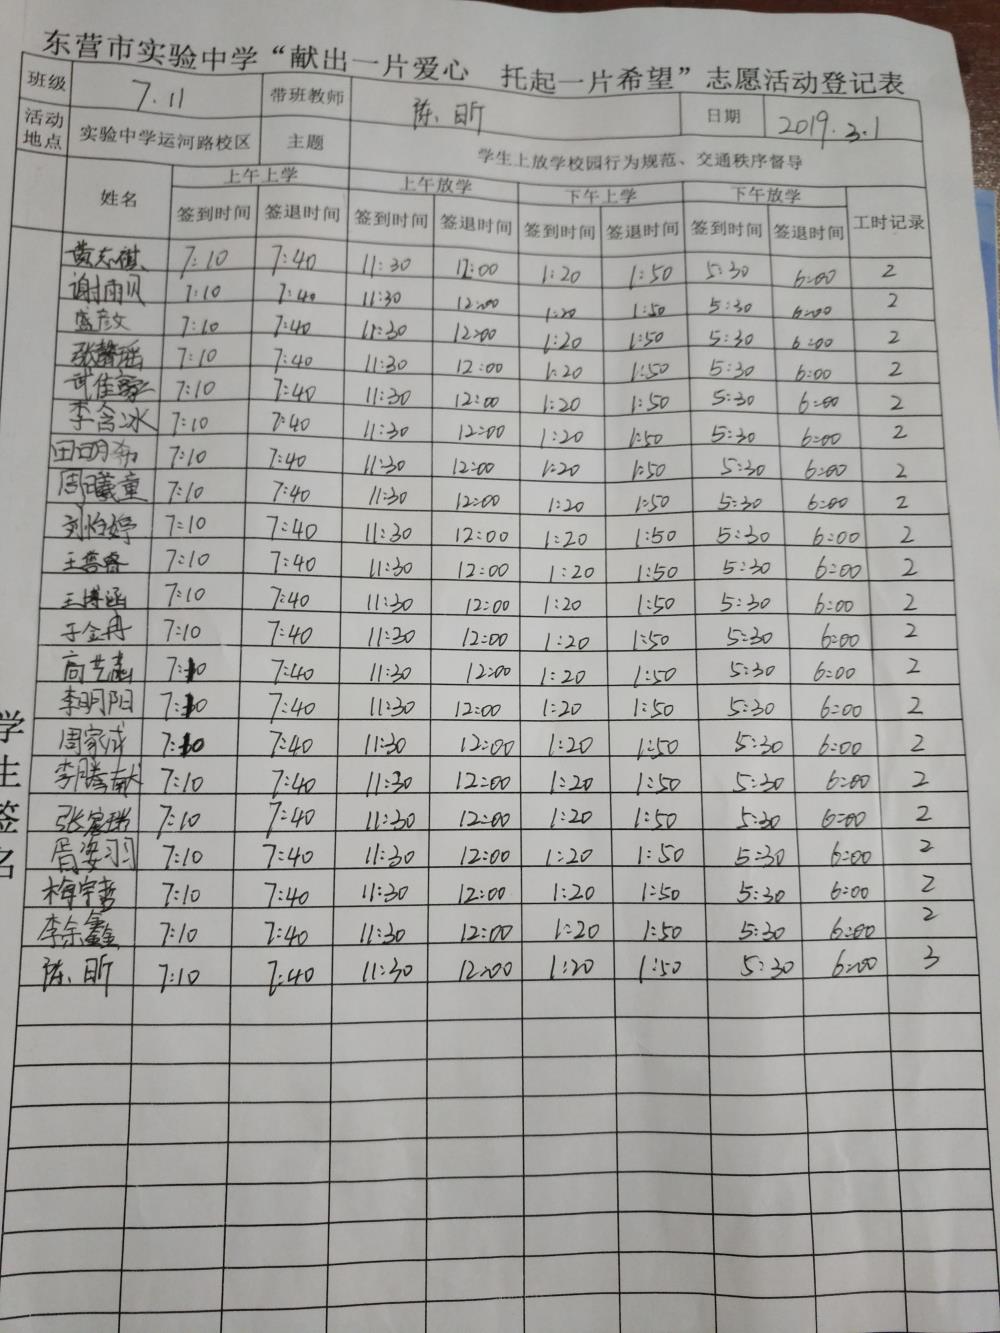 东营市实验中学“献出一片爱心 托起一片希望”志愿活动登记表
班级 7.11 带班教师 陈昕 日期 2019.3.1
活动地点 实验中学运河路校区 主题 学生上放学校园行为规范、交通秩序督导
姓名 上午上学 上午放学 下午上学 下午放学 工时记录
签到时间 签退时间 签到时间 签退时间 签到时间 签退时间 签到时间 签退时间
黄志祺 7:10 7:40 11:30 12:00 1:20 1:50 5:30 6:00 2
谢雨贝 7:10 7:40 11:30 12:00 1:20 1:50 5:30 6:00 2
盛彦文 7:10 7:40 11:30 12:00 1:20 1:50 5:30 6:00 2
张馨瑶 7:10 7:40 11:30 12:00 1:20 1:50 5:30 6:00 2
武佳 7:10 7:40 11:30 12:00 1:20 1:50 5:30 6:00 2
李含冰 7:10 7:40 11:30 12:00 1:20 1:50 5:30 6:00 2
田明希 7:10 7:40 11:30 12:00 1:20 1:50 5:30 6:00 2
周曦童 7:10 7:40 11:30 12:00 1:20 1:50 5:30 6:00 2
刘怡婷 7:10 7:40 11:30 12:00 1:20 1:50 5:30 6:00 2
王 睿 7:10 7:40 11:30 12:00 1:20 1:50 5:30 6:00 2
王博涵 7:10 7:40 11:30 12:00 1:20 1:50 5:30 6:00 2
于金冉 7:10 7:40 11:30 12:00 1:20 1:50 5:30 6:00 2
高艺 7:10 7:40 11:30 12:00 1:20 1:50 5:30 6:00 2
李明阳 7:10 7:40 11:30 12:00 1:20 1:50 5:30 6:00 2
周家成 7:10 7:40 11:30 12:00 1:20 1:50 5:30 6:00 2
李腾献 7:10 7:40 11:30 12:00 1:20 1:50 5:30 6:00 2
张宸瑞 7:10 7:40 11:30 12:00 1:20 1:50 5:30 6:00 2
胥姿羽 7:10 7:40 11:30 12:00 1:20 1:50 5:30 6:00 2
梅宇哲 7:10 7:40 11:30 12:00 1:20 1:50 5:30 6:00 2
李余鑫 7:10 7:40 11:30 12:00 1:20 1:50 5:30 6:00 2
陈昕 7:10 7:40 11:30 12:00 1:20 1:50 5:30 6:00 3
学生签名